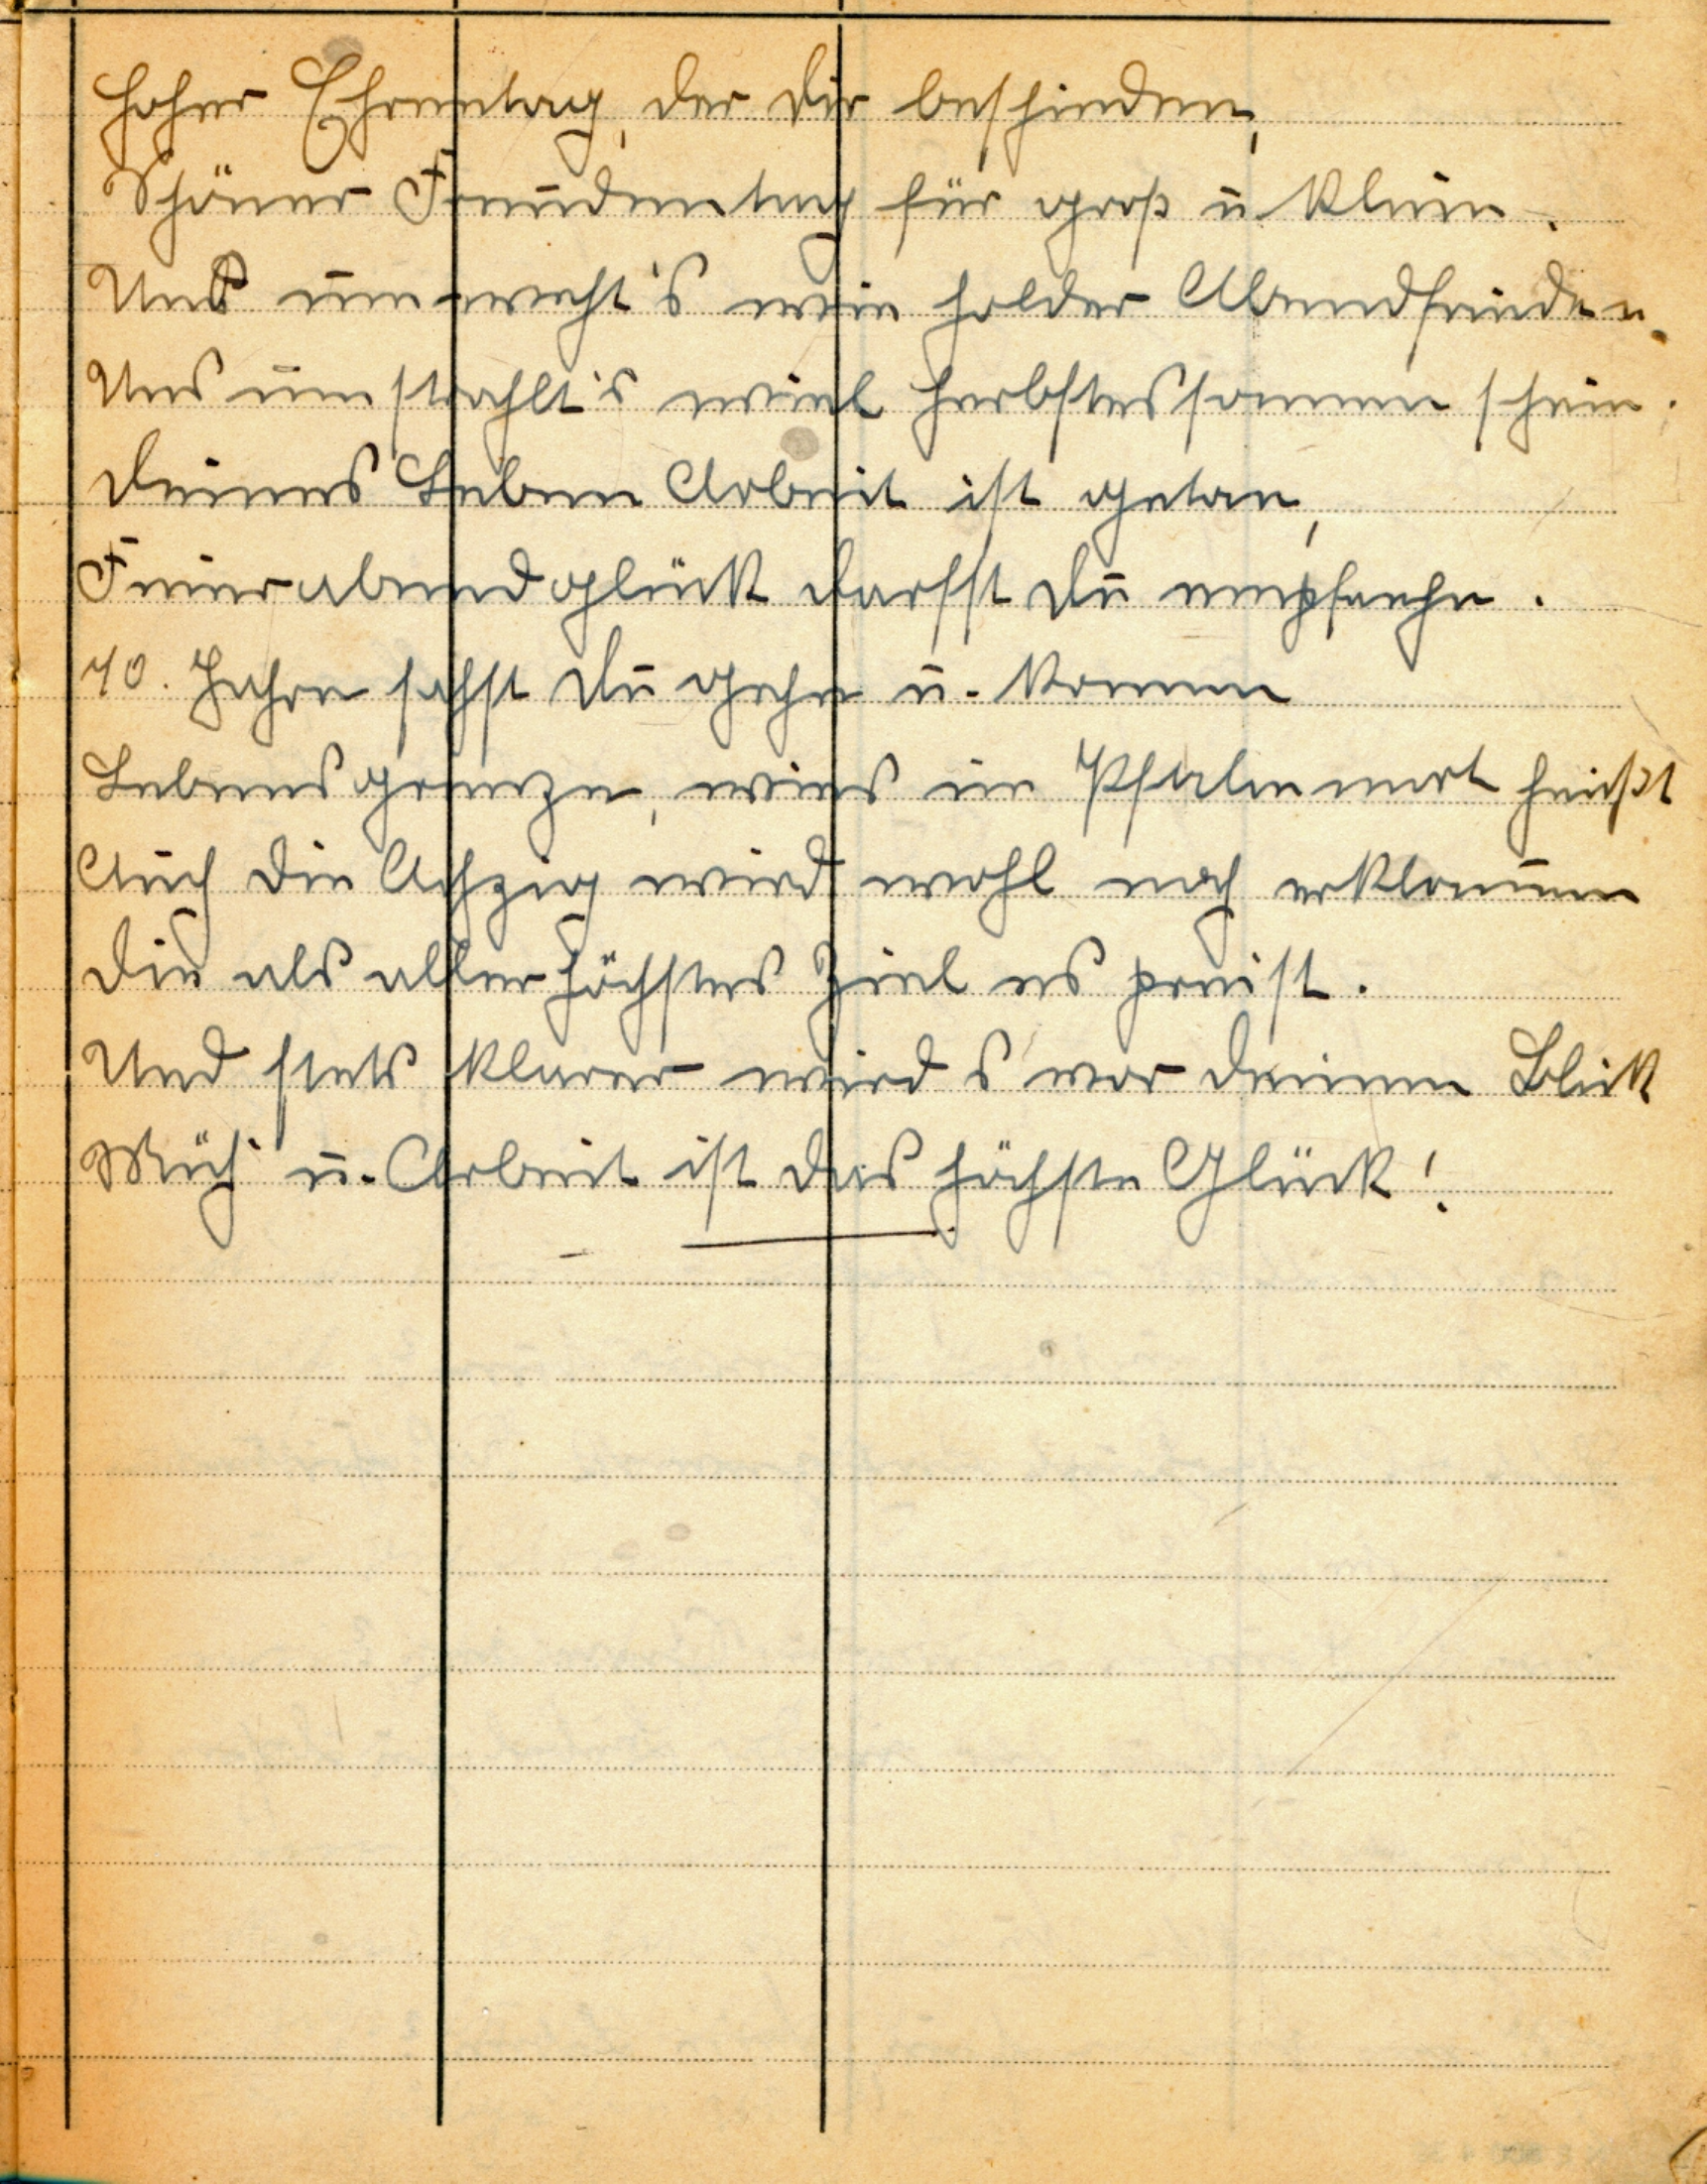 Hoher Ehrentag, der dir beschieden,
Schöner Freudentag für groß u klein.
Uns umweht's wie holder Abendfrieden.
Uns umstrahlt's wie Herbstessonnenschein.
Deines Leben Arbeit ist getan,
Feierabendglück darfst du empfahn.
70. Jahre sahst du gehn u. kommen
Lebensgrenze, wies im Psalmwort heißt
Auch die Achzig wird wohl noch erklommen
Die als allerhöchstes Ziel es preist.
Und stets klarer wird s vor deinem Blick
Müh' u. Arbeit ist das höchste Glück!